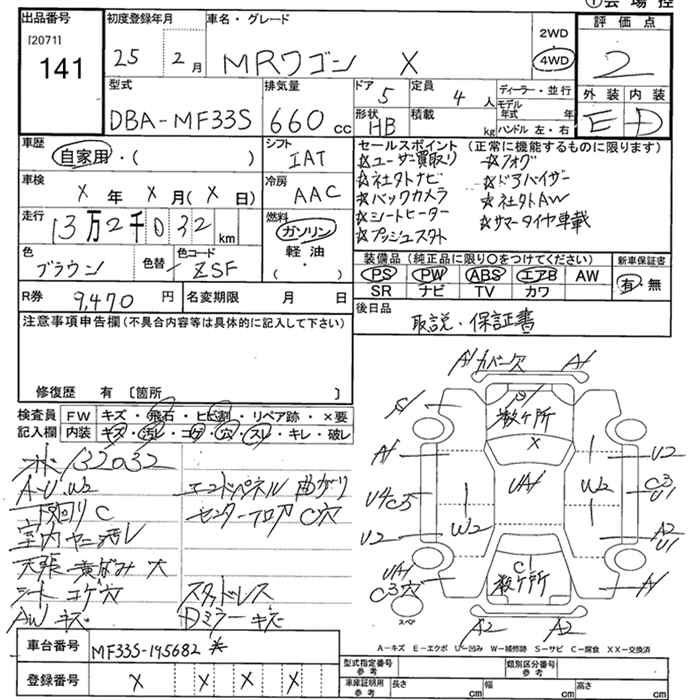 ①会場控
出品番号
[2071]
141
初度登録年月
25 2月
車名・グレード
MRワゴン X
2WD
4WD
評価点
2
外装 内装
E D
型式
DBA-MF33S
排気量
660cc
ドア
5
定員
4人
形状
HB
積載
kg
ディーラー・並行
モデル年式 年
ハンドル 左・右
車歴
自家用・( )
シフト
IAT
セールスポイント (正常に機能するものに限ります)
☆ユーザー買取り ☆フォグ
☆社外ナビ ☆ドアバイザー
☆バックカメラ ☆社外AW
☆シートヒーター ☆サマータイヤ車載
☆プッシュスタート
車検
X年X月(X日)
冷房
AAC
走行
13万2千032km
燃料
ガソリン
軽油
( )
色
ブラウン
色替
色コード
ZSF
装備品 (純正品に限り○をつけてください)
PS PW ABS エアB AW
SR ナビ TV カワ
新車保証書
有・無
R券 9,470円
名変期限 月 日
後日品
取説・保証書
注意事項申告欄(不具合内容等は具体的に記入して下さい)
修復歴 有 〔箇所 〕
検査員記入欄
FW キズ・飛石・ヒビ割・リペア跡・×要
内装 キズ・汚レ・コゲ・穴・スレ・キレ・破レ
132032
A-U.W2 エンドパネル曲がり
下回りC センターフロアC穴
室内ヤニ汚レ
天張黄ばみ大
シートコゲ穴 スタッドレス
AWキズ Dミラーキズ
A1 カバー欠 A1
S
数ヶ所
X
A1 U2
UA1
U4 C3 W2 C3 U1
U2 W2 A2 U1
UA1
C3穴
C
数ヶ所
A1
スペア
A2 A2
A-キズ E-エクボ U-凹み W-補修跡 S-サビ C-腐食 XX-交換済
車台番号
MF33S-145682
登録番号
X X X X
型式指定番号
参考
類別区分番号
参考
車庫証明用
参考
長さ cm
幅 cm
高さ cm